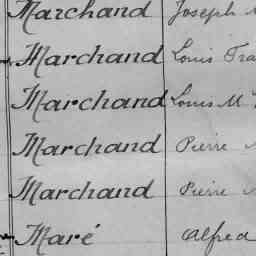 Marchand Joseph
Marchand Louis
Marchand Louis M
Marchand Pierre
Marchand Pierre
Maré Alfred